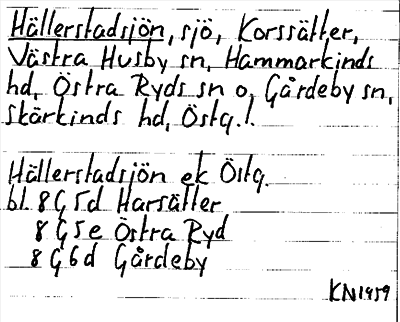 Hällerstadsjön, sjö, Korssätter,
Västra Husby sn, Hammarkinds
hd, Östra Ryds sn o, Gårdeby sn,
Skärkinds hd, Östg.l.
Hällerstadsjön ek Östg.
bl. 8G5d Harsätter
8G5e Östra Ryd
8G6d Gårdeby
KN1959